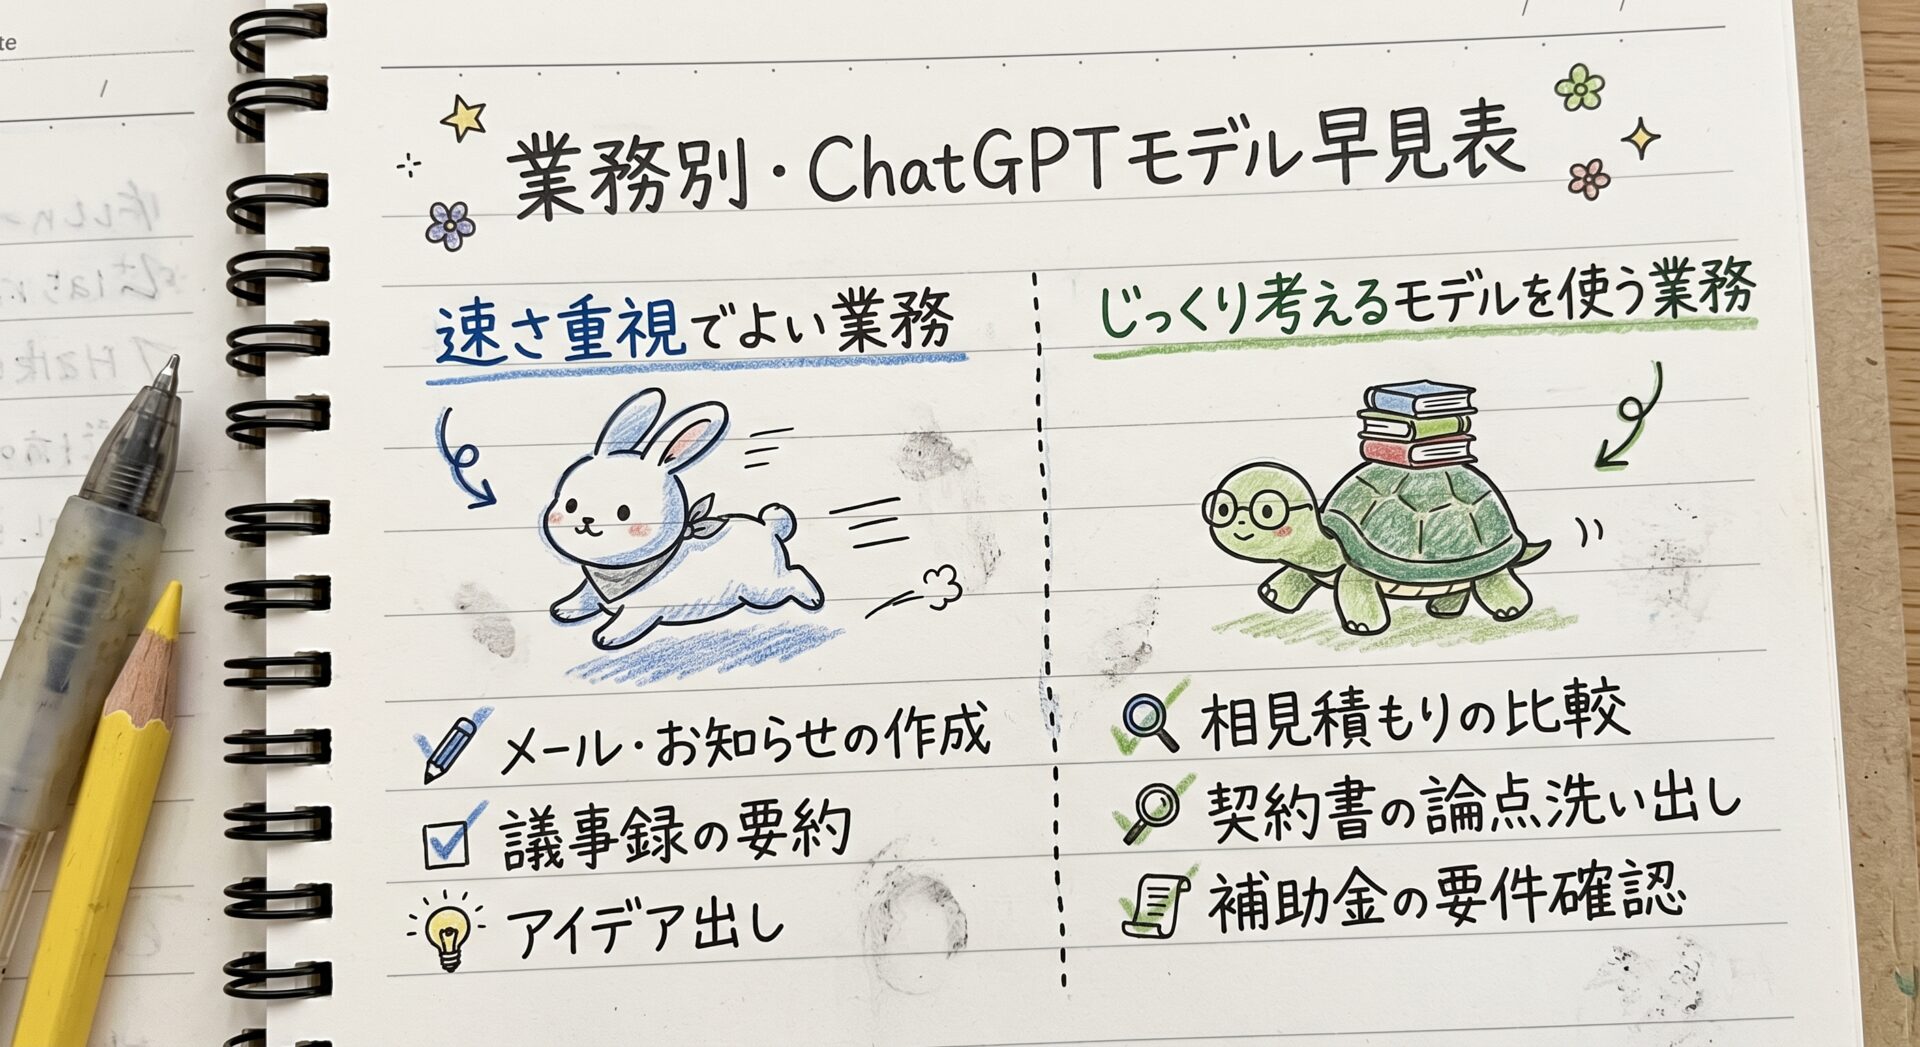 te
業務別・ChatGPTモデル早見表
速さ重視でよい業務
メール・お知らせの作成
議事録の要約
アイデア出し
じっくり考えるモデルを使う業務
相見積もりの比較
契約書の論点洗い出し
補助金の要件確認